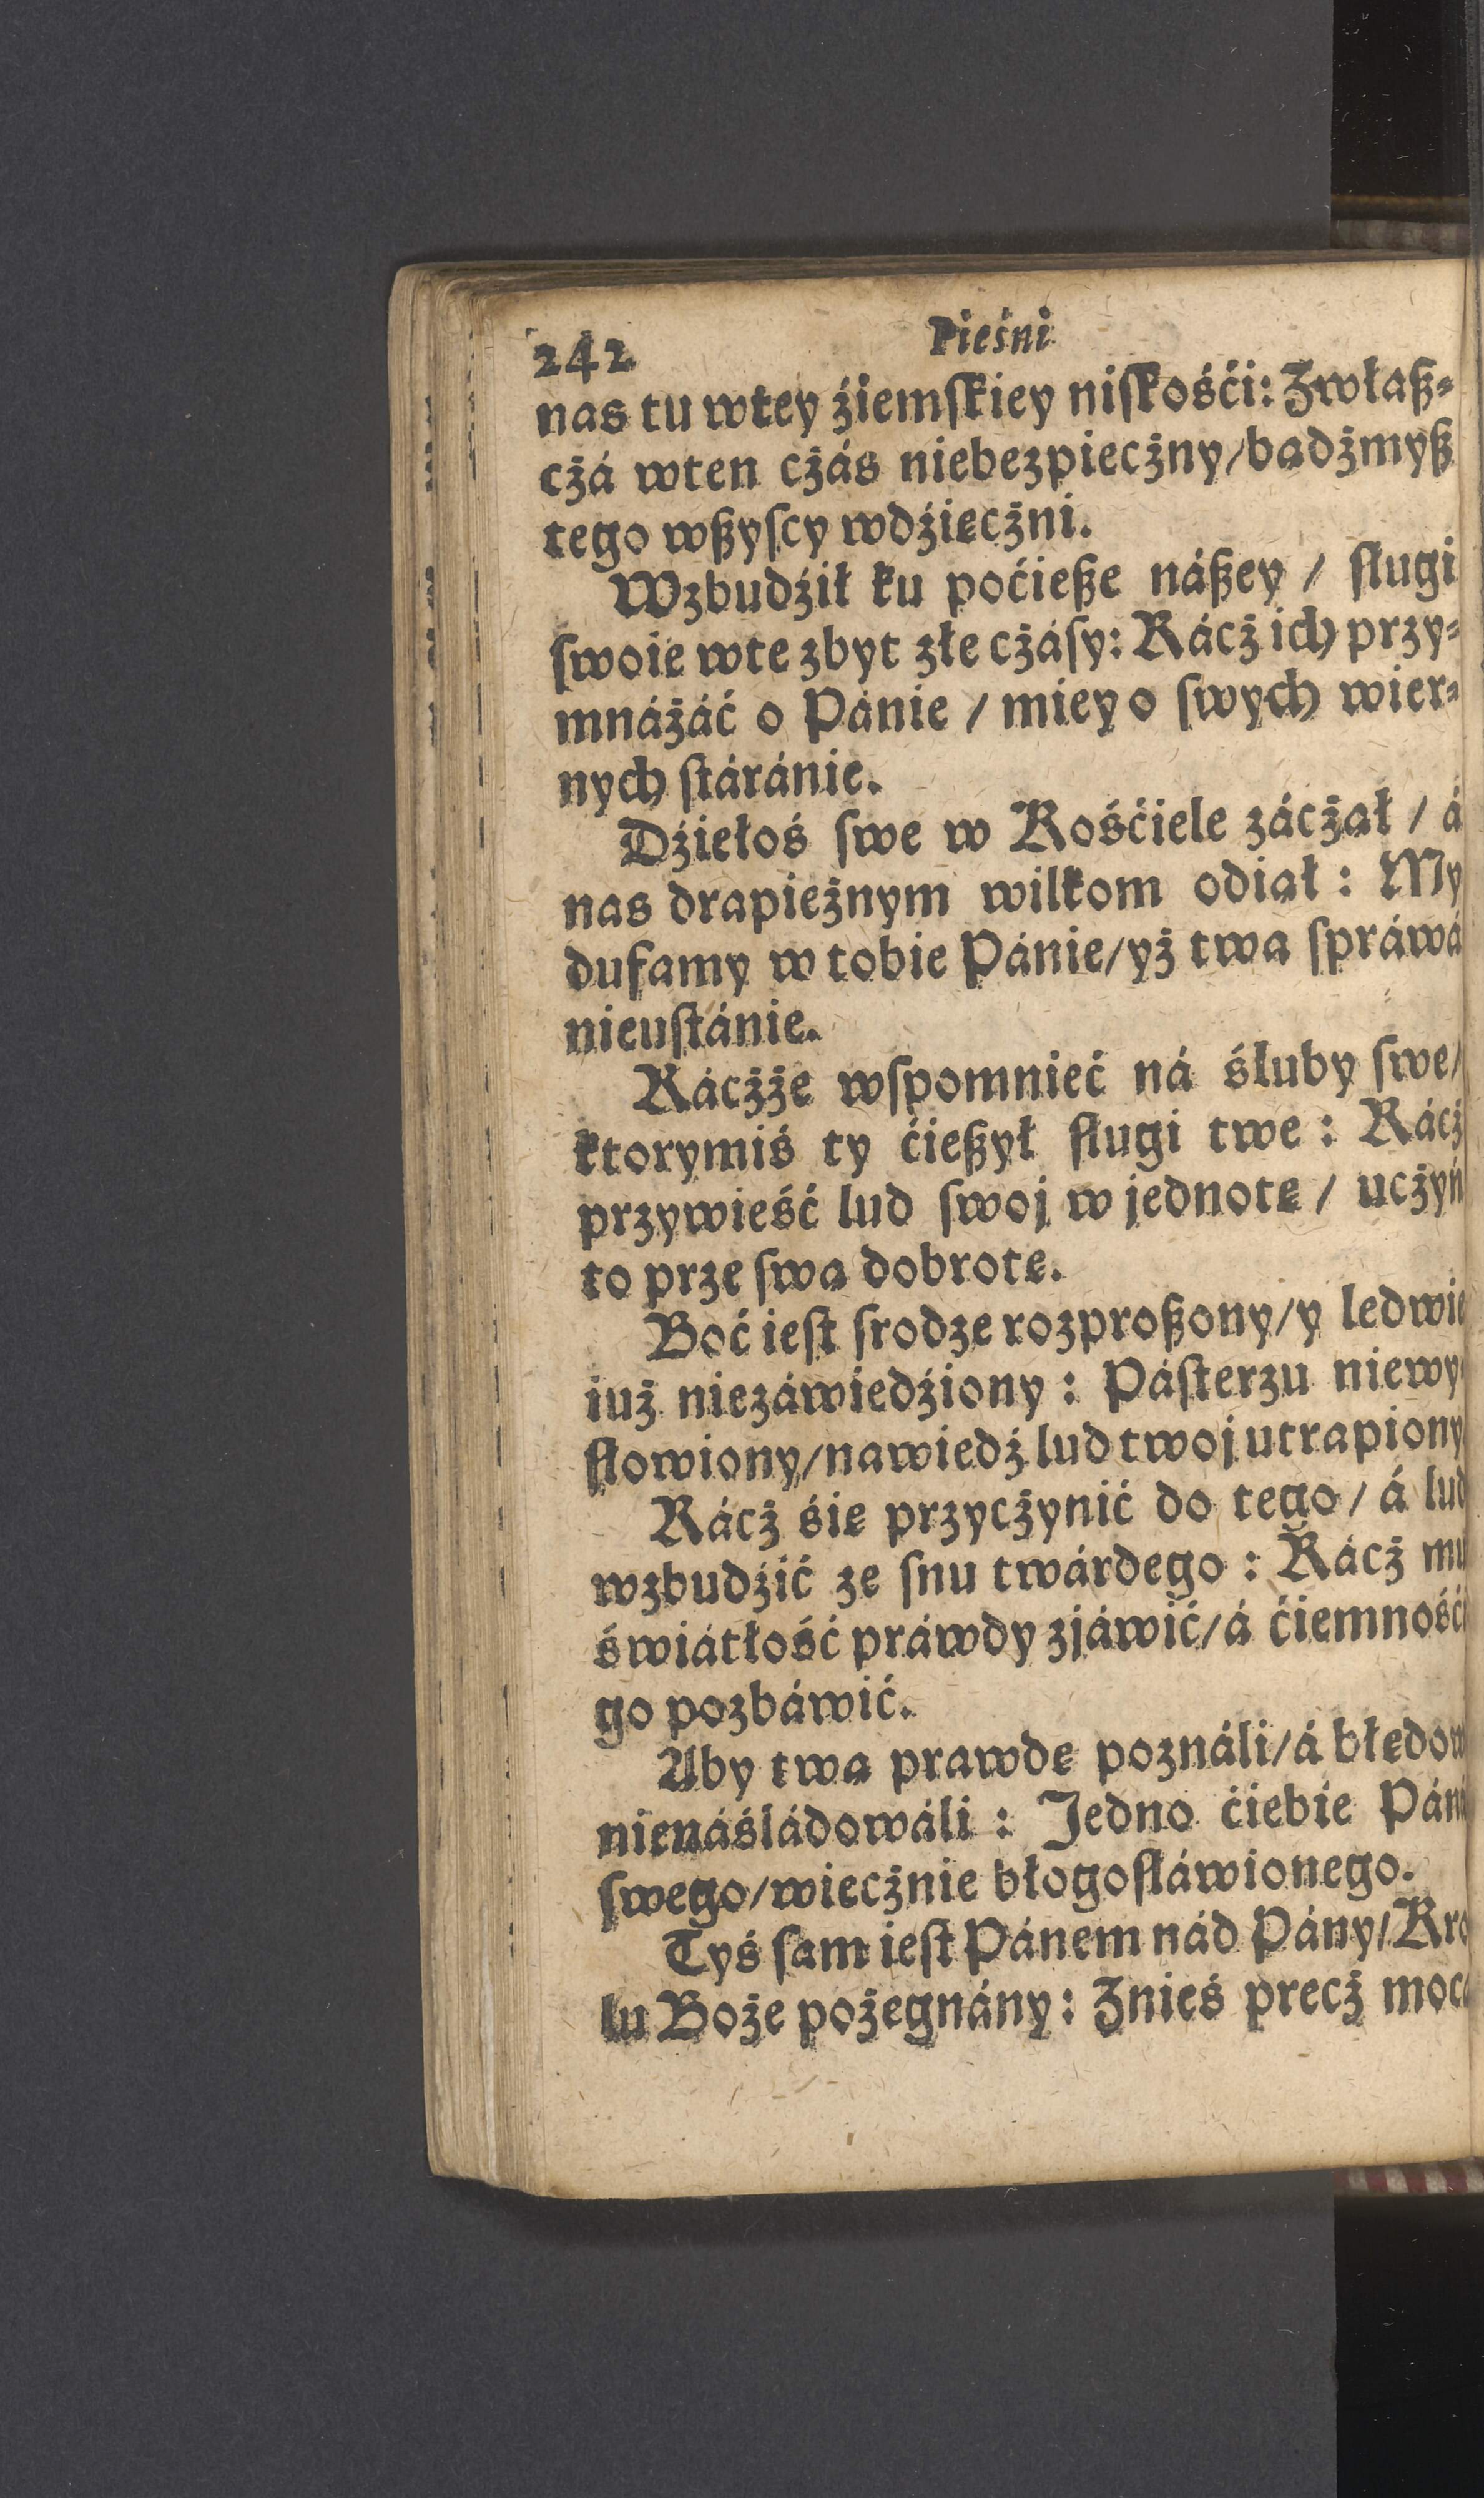 242 Pieśni
nas tu wtey źiemſkiey niſkośći: Zwłaß⸗
cżá wten cżás niebezpiecżny/bądżmyß
tego wßyſcy wdźięcżni.
Wzbudźił ku poćieße náßey / ſlugi
ſwoie wte zbyt złe cżáſy: Rácż ich przy⸗
mnáżáć o Pánie / miey o ſwych wier⸗
nych ſtáránie.
Dźiełoś ſwe w Kośćiele zácżął / á
nas drapieżnym wilkom odiął : My
dufamy w tobie Pánie/yż twa ſpráwá
nieuſtánie.
Rácżże wſpomnieć ná śluby ſwe/
ktorymiś ty ćießył ſlugi twe : Rácż
przywieść lud ſwoj w jednotę / ucżyń
to prze ſwą dobrotę.
Boć ieſt ſrodze rozproßony/y ledwie
iuż niezáwiedźiony : Páſterzu niewy⸗
ſlowiony/nawiedź lud twoj utrapiony
Rácż śię przycżynić do tego / á lud
wzbudźić ze ſnu twárdego : Rácż mu
świátłość práwdy zjáwić/á ćiemnośći
go pozbáwić.
Aby twą prawdę poználi/á błędow
nienáśládowáli : Jedno ćiebie Páná
ſwego/wiecżnie błogoſláwionego.
Tyś ſam ieſt Pánem nád Pány/Kro
lu Boże pożegnány : Znieś precż moc